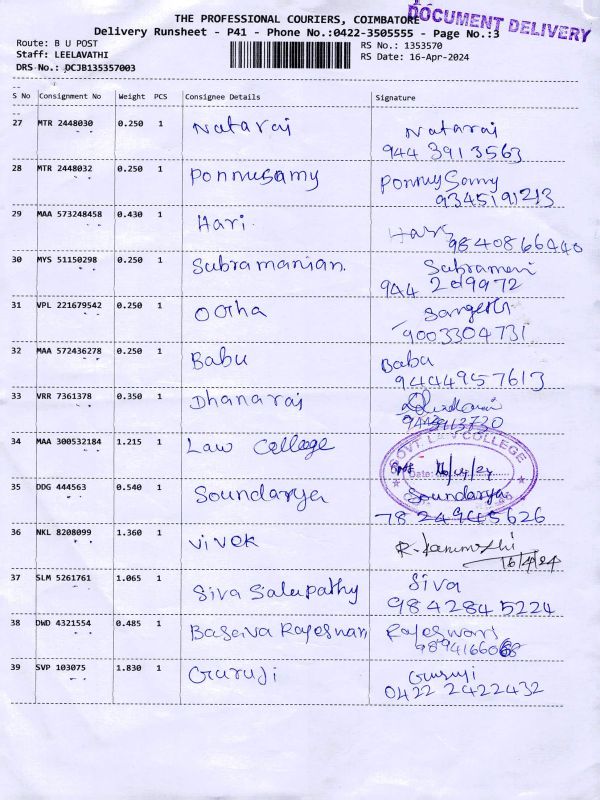 THE PROFESSIONAL COURIERS, COIMBATORE
DOCUMENT DELIVERY
Delivery Runsheet - P41 - Phone No.:0422-3505555 - Page No.:3
Route: B U POST
RS No.: 1353570
Staff: LEELAVATHI
RS Date: 16-Apr-2024
DRS No.: DCJB135357003
S No Consignment No Weight PCS Consignee Details Signature
27 MTR 2448030 0.250 1 Nataraj Nataraj
944 3913563
28 MTR 2448032 0.250 1 Ponnusamy Ponnusamy
9345191213
29 MAA 573248458 0.430 1 Hari Hari
9840866440
30 MYS 51150298 0.250 1 Subramanian. Subramani
944 2d9972
31 VPL 221679542 0.250 1 Sangeeth
9003304731
32 MAA 572436278 0.250 1 Babu Babu
9444957613
33 VRR 7361378 0.350 1 Dhanaraj
34 MAA 300532184 1.215 1 Law College
GOVT LAW COLLEGE
Date: 16/4/24
35 DDG 444563 0.540 1 Soundarya Soundarya
78 24945626
36 NKL 8208099 1.360 1 Vivek
16/4/24
37 SLM 5261761 1.065 1 Siva Salupathy Siva
984284 5224
38 DWD 4321554 0.485 1 Rajeswari Rajeswari
39 SVP 103075 1.830 1 Guruji Guruji
0422 2422432